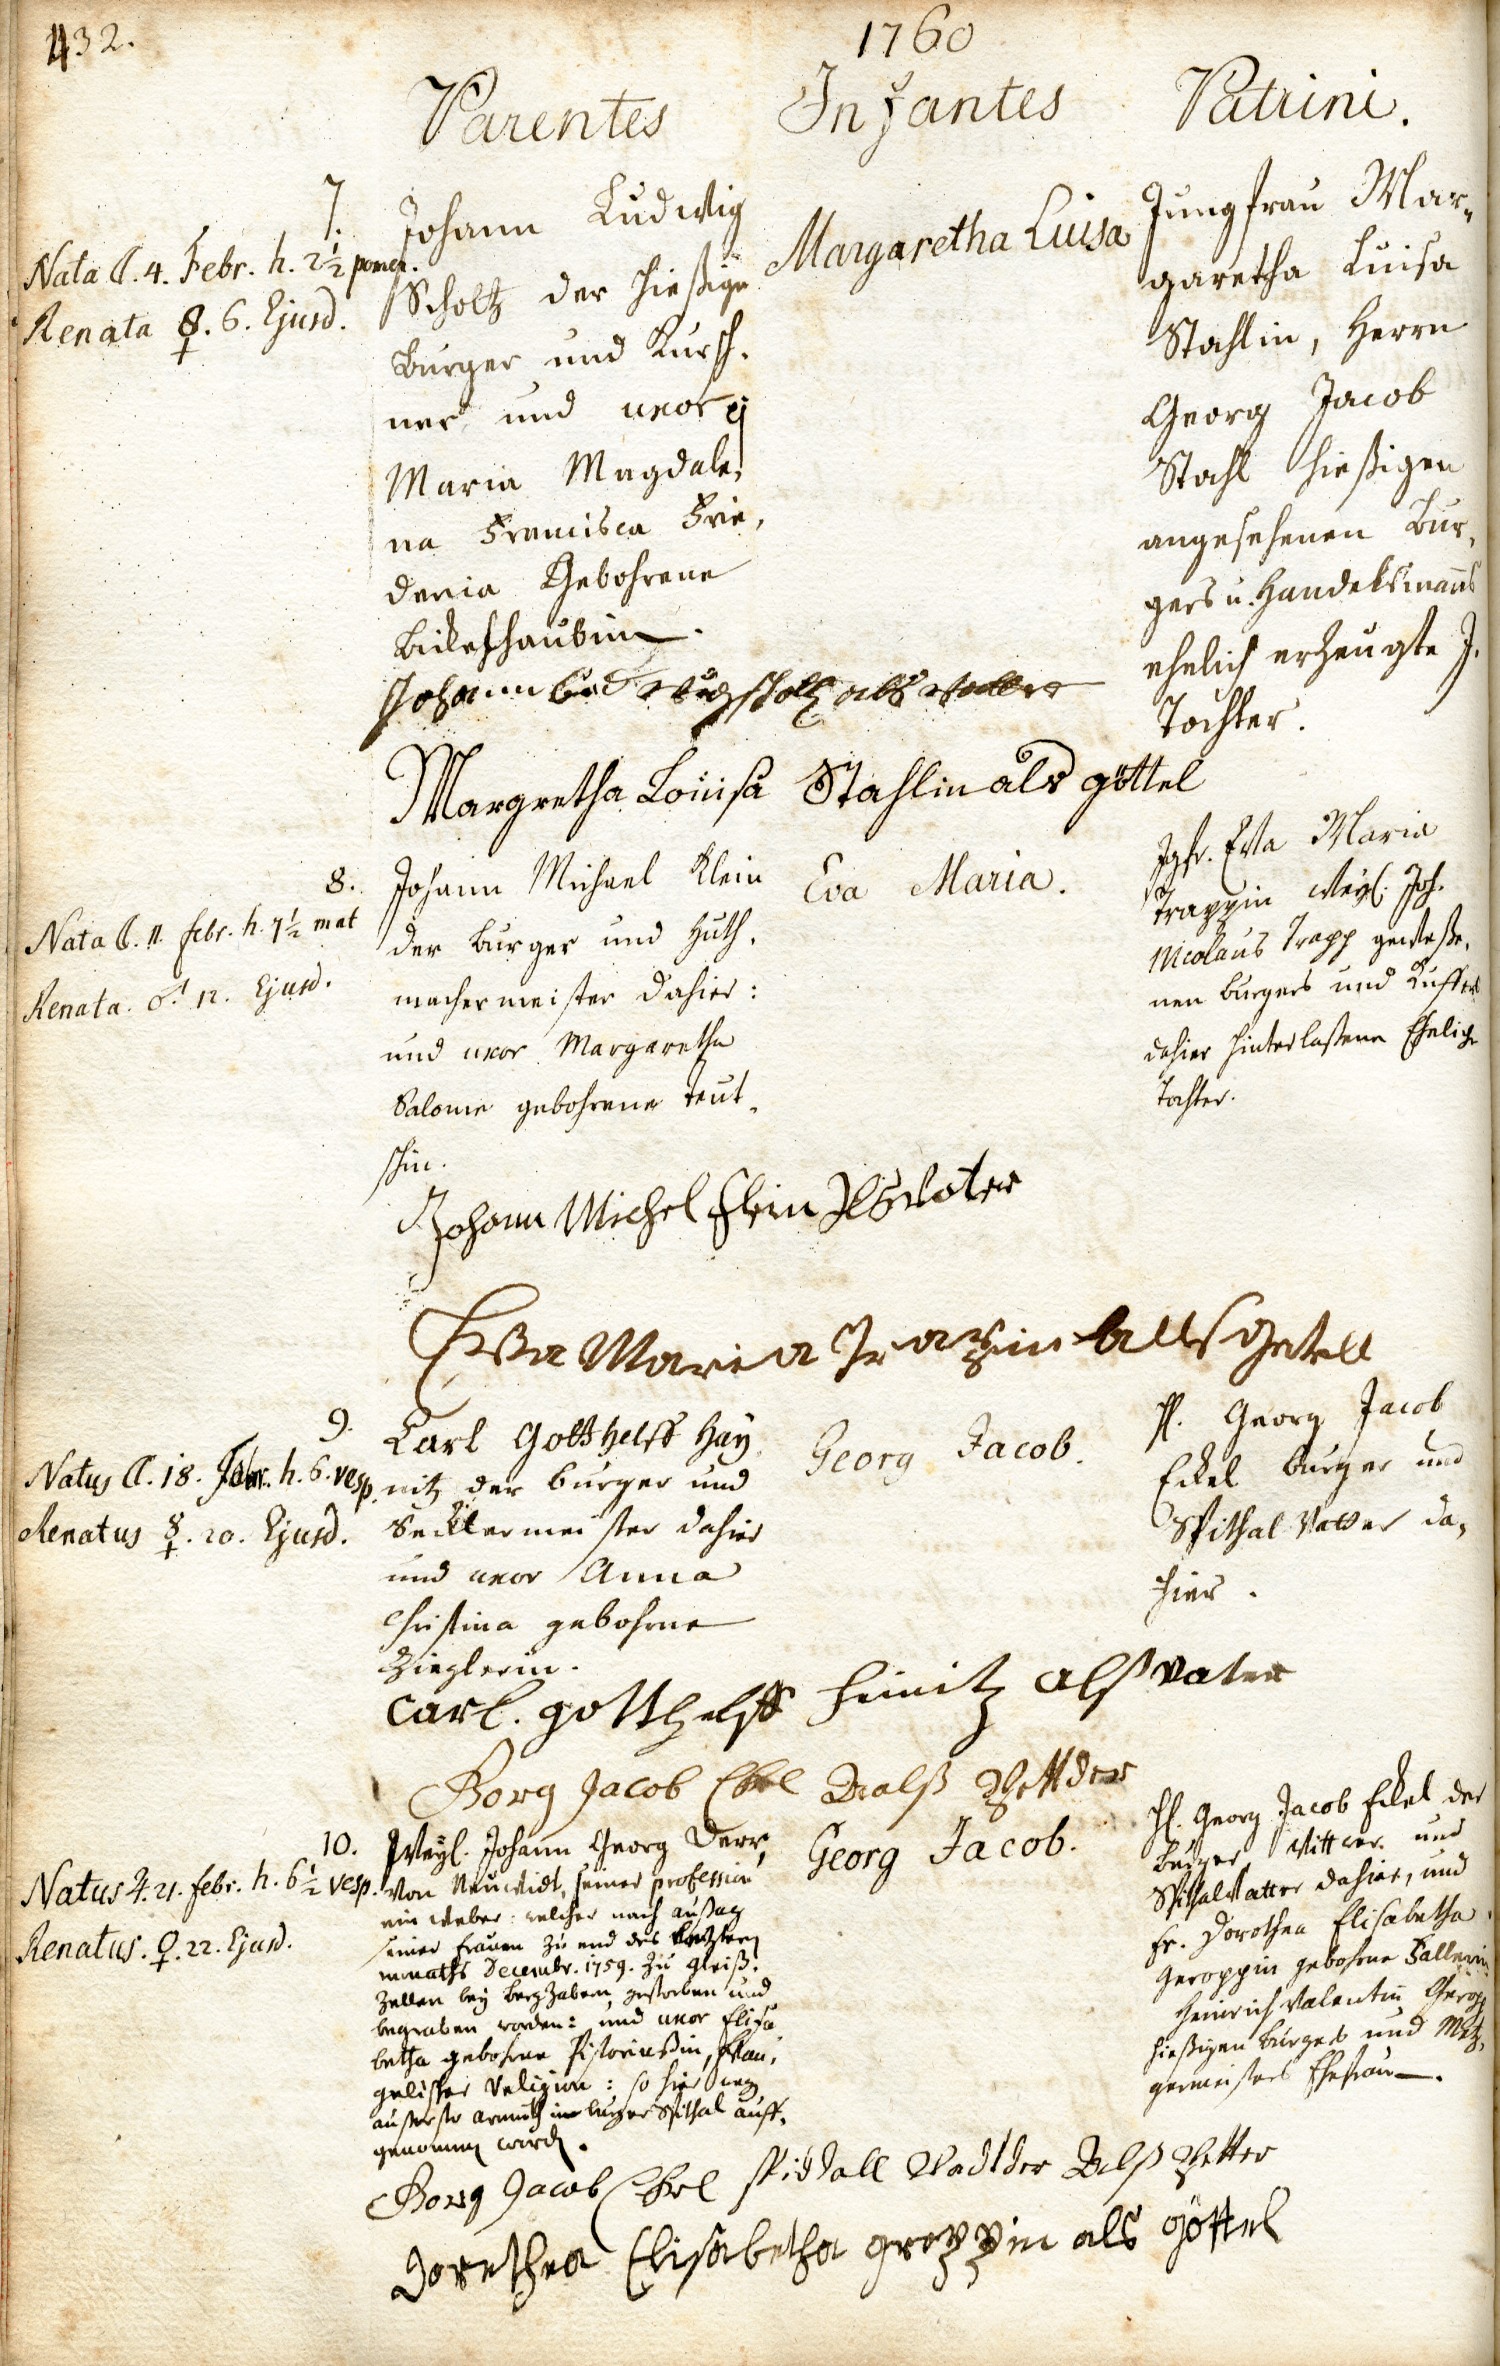 432.
1760
Parentes Infantes Patrini.
7.
Nata ☾. 4. Febr. h. 2½ pomer.
Renata ☿. 6. Ejusd.
Johann Ludwig
Scholtz der hießige
Burger und Kursch-
ner und uxor ej
Maria Magdale,
na Francisca Frie,
dericia Gebohrene
Johann Ludwig scholtz als vatter
Margaretha Luisa
Jungfrau Mar,
garetha Luisa
Stahlin, Herrn
Georg Jacob
Stahl hießigen
angesehenen Bur,
gers u. Handelsmanns
ehelich erzeugte J.
Tochter.
Margretha Louisa Stahlin als göttel
8.
Nata ☾. 11. febr. h. 7½ mat
Renata. ♂. 12. Ejusd.
Johann Michael Klein
der burger und Huth,
machermeister dahier:
und uxor Margaretha
Salome gebohrene Teut,
schin.
Eva Maria.
Jgfr. Eva Maria
Trappin weyl. Joh.
Nicolaus Trapp geweße,
nen burgers und Kuffers
dahier hinterlaßene Ehelige
Tochter.
Johann Michel Klein Als vater
Eva Maria Trapin alls getell
9.
Natus ☾. 18. Febr. h. 6. vesp.
Renatus ☿. 20. Ejusd.
Carl Gotthelff Hay,
nitz der burger und
Secklermeister dahier
und uxor Anna
Christina gebohrne
Zieglerin.
Georg Jacob.
H. Georg Jacob
Eckel burger und
Spithal Vatter da,
hier.
Carl. gotthelff heinitz alß vater
Gorg Jacob Ekel alß Pettder
10.
Natus ♃. 21. febr. h. 6½ vesp.
Renatus. ♀. 22. Ejusd.
Weyl. Johann Georg Derr,
von Neuwidt, seiner profession
ein weber: welcher nach außag
seiner frauen zu end des letztern
monaths Decembr. 1759. zu Gleiß,
zellen bey bergzabern gestorben und
begraben worden: und uxor Elisa
betha gebohrne Pistoriußin, Evan,
gelischer Religion: so hier weg
äußerster armuth in burger Spithal auff,
genommen word.
Georg Jacob.
H. Georg Jacob Eckel der
burger, Wittwer und
Spithalvatter dahier, und
Fr. Dorothea Elisabetha
Geroppin gebohrne Fallerin
Heinrich Valentin Geropp
hießigen burgers und Metz,
germeisters Ehefrau.
Gorg Jacob Ekel spidtall Vadtder Alß Petter
Dorethea Elisabetha groppin als göttel